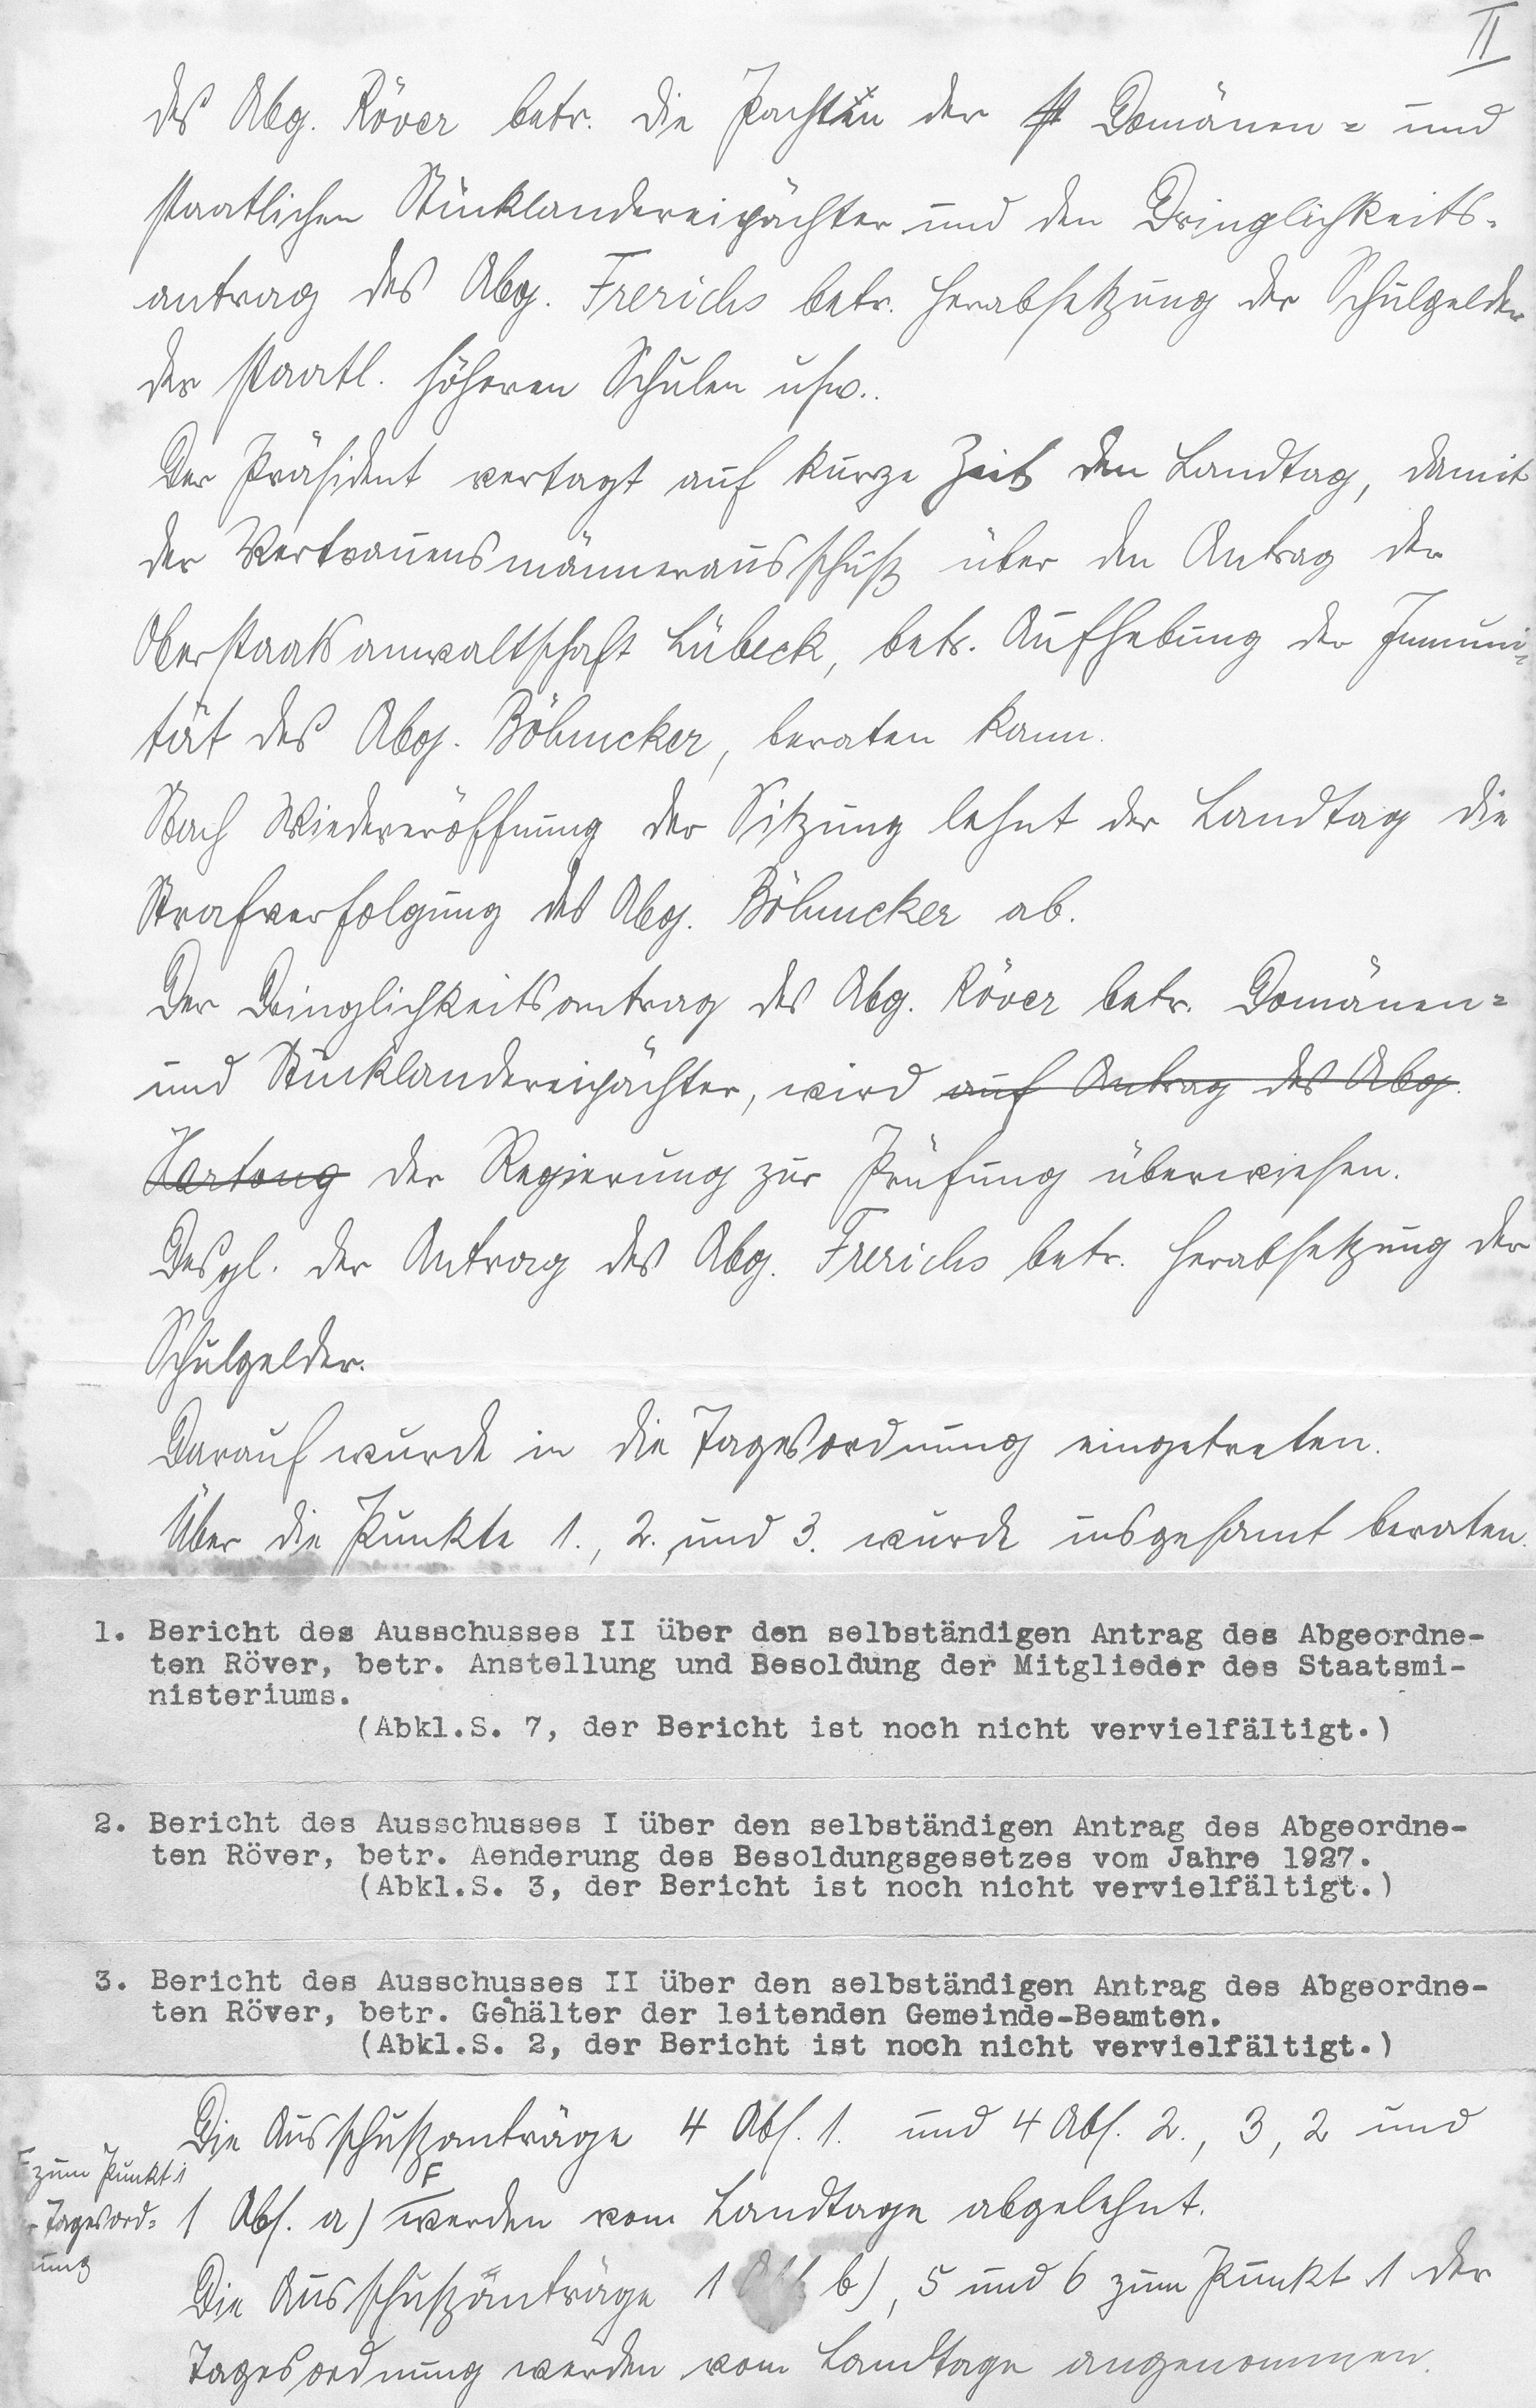 II
des Abg. Röver betr. die Pachten der Domänen= und
staatlichen Stücklandereipächter und den Dringlichkeits-
antrag des Abg. Frerichs betr. Herabsetzung der Schulgelder
der staatl. höheren Schulen usw..
Der Präsident vertagt auf kurze Zeit den Landtag, damit
der Vertrauensmännerausschuß über den Antrag der
Oberstaatsanwaltschaft Lübeck, betr. Aufhebung der Immuni=
tät des Abg. Böhmcker, beraten kann.
Nach Wiedereröffnung der Sitzung lehnt der Landtag die
Strafverfolgung des Abg. Böhmcker ab.
Der Dringlichkeitsantrag des Abg. Röver betr. Domänen=
und Stücklandereipächter, wird auf Antrag des Abg.
Hartong der Regierung zur Prüfung überwiesen.
Desgl. der Antrag des Abg. Frerichs betr. Herabsetzung der
Schulgelder.
Darauf wurde in die Tagesordnung eingetreten.
Über die Punkte 1., 2. und 3. wurde insgesamt beraten.
1. Bericht des Ausschusses II über den selbständigen Antrag des Abgeordne-
ten Röver, betr. Anstellung und Besoldung der Mitglieder des Staatsmi-
nisteriums.
(Abkl.S. 7, der Bericht ist noch nicht vervielfältigt.)
2. Bericht des Ausschusses I über den selbständigen Antrag des Abgeordne-
ten Röver, betr. Aenderung des Besoldungsgesetzes vom Jahre 1927.
(Abkl.S. 3, der Bericht ist noch nicht vervielfältigt.)
3. Bericht des Ausschusses II über den selbständigen Antrag des Abgeordne-
ten Röver, betr. Gehälter der leitenden Gemeinde-Beamten.
(Abkl.S. 2, der Bericht ist noch nicht vervielfältigt.)
Die Ausschußanträge 4 Abs. 1. und 4 Abs. 2., 3, 2 und
F zum Punkt 1
Tagesord=
nung
1 Abs. a) F werden vom Landtage abgelehnt.
Die Ausschußanträge 1 b), 5 und 6 zum Punkt 1 der
Tagesordnung werden vom Landtage angenommen.